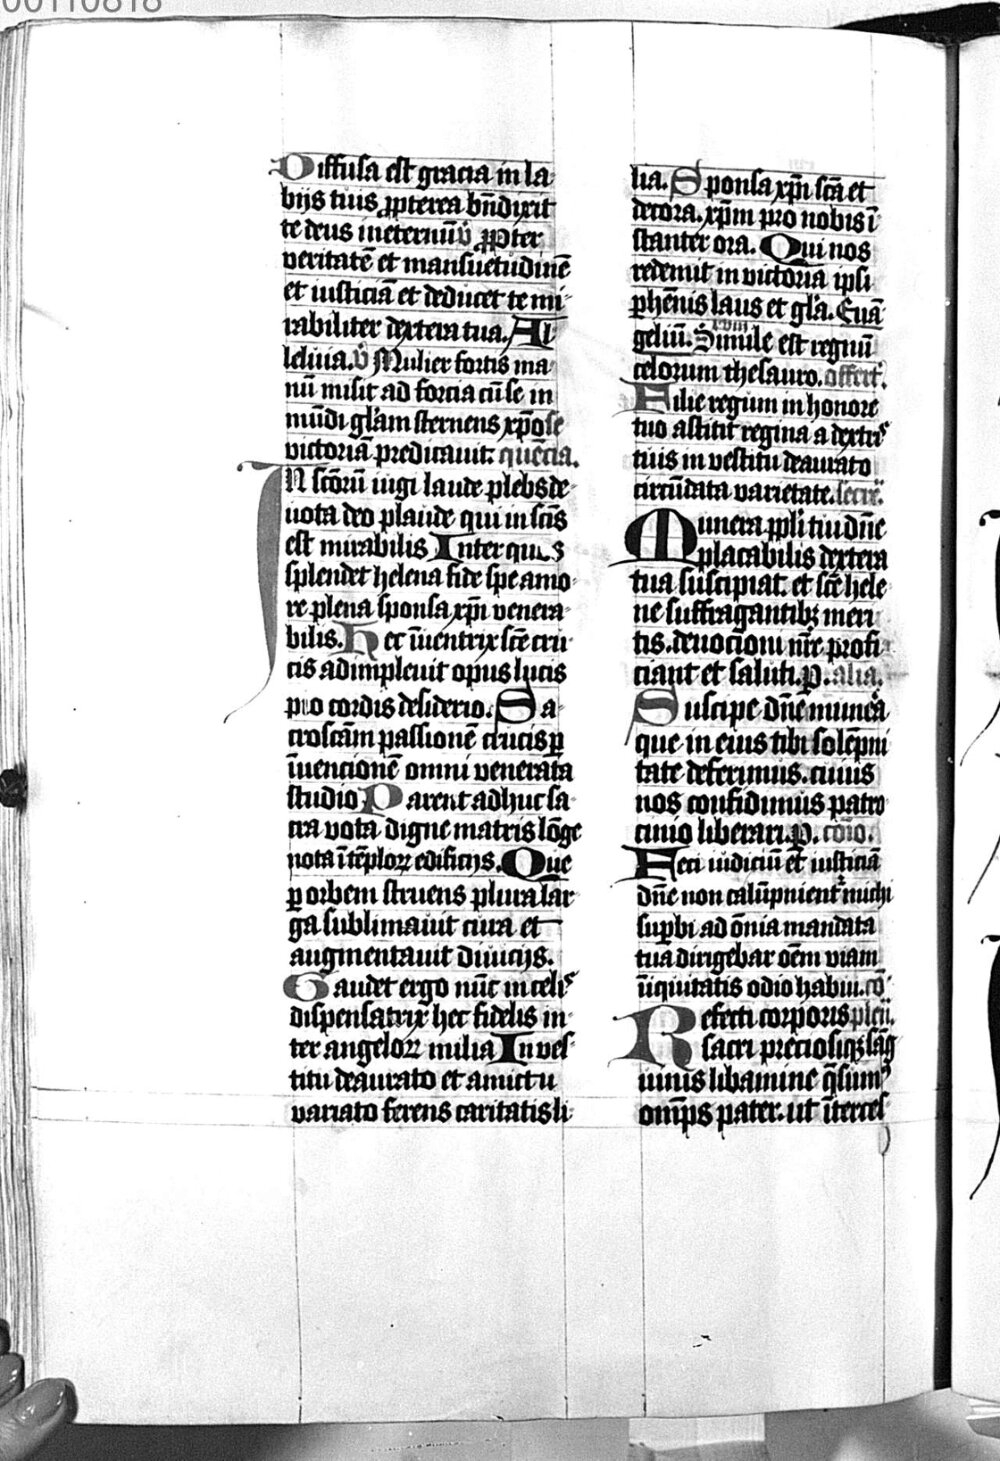 00110818
Diffusa est gracia in la
bijs tuis ꝓpterea bn̄dixit
te deus ineternū v̄ ꝓpter
veritatē et mansuetudinē
et iusticiā et deducet te mi
rabiliter dextera tua. Al
leluia. v̄ Mulier fortis ma
nū misit ad forcia cū se in
mūdi gl̄am sternens xp̄o se
victoriā predicauit. quēcia.
IN sc̄orū iugi laude plebs de
uota deo plaude qui in sc̄is
est mirabilis Inter quas
splendet helena fide spe amo
re plena sponsa xp̄i venera
bilis. Hec īuentrix sc̄e cru
cis adimpleuit opus lucis
pio cordis desiderio. Sa
crosc̄am passionē crucis ꝑ
īuencionē omni venerata
studio Parent adhuc sa
cra vota digne matris lōge
nota ītēploꝝ edificijs. Que
ꝑ orbem struens plura lar
ga sublimauit cura et
augmentauit diuicijs.
Gaudet ergo nūc in celis
dispensatrix hec fidelis in
ter angeloꝝ milia In ves
titu deaurato et amictu
variato ferens caritatis li
lia. Sponsa xp̄i sc̄a et
decora. xp̄m pro nobis ī
stanter ora. Qui nos
redemit in victoria ipsi
ꝑhēnis laus et gl̄a. Euā
geliū. Simile est regnū
celorum thesauro. offert.
Filie regum in honore
tuo astitit regina a dextris
tuis in vestitu deaurato
circūdata varietate. secr̄.
Munera ppl̄i tui dn̄e
placabilis dextera
tua suscipiat. et sc̄e hele
ne suffragantibꝫ meri
tis. deuocioni nr̄e profi
ciant et saluti. ꝑ. alia.
Suscipe dn̄e munera
que in eius tibi solēpni
tate deferimus. cuius
nos confidimus patro
cinio liberari. ꝑ. cōio.
Feci iudiciū et iusticiā
dn̄e non calūpnient᷑ michi
suꝑbi ad ōnia mandata
tua dirigebar oēm viam
īiquitatis odio habui. cō
Refecti corporis plen̄.
sacri preciosiqꝫ sāg
uinis libamine q̄sum᷒
omp̄s pater. ut īterces